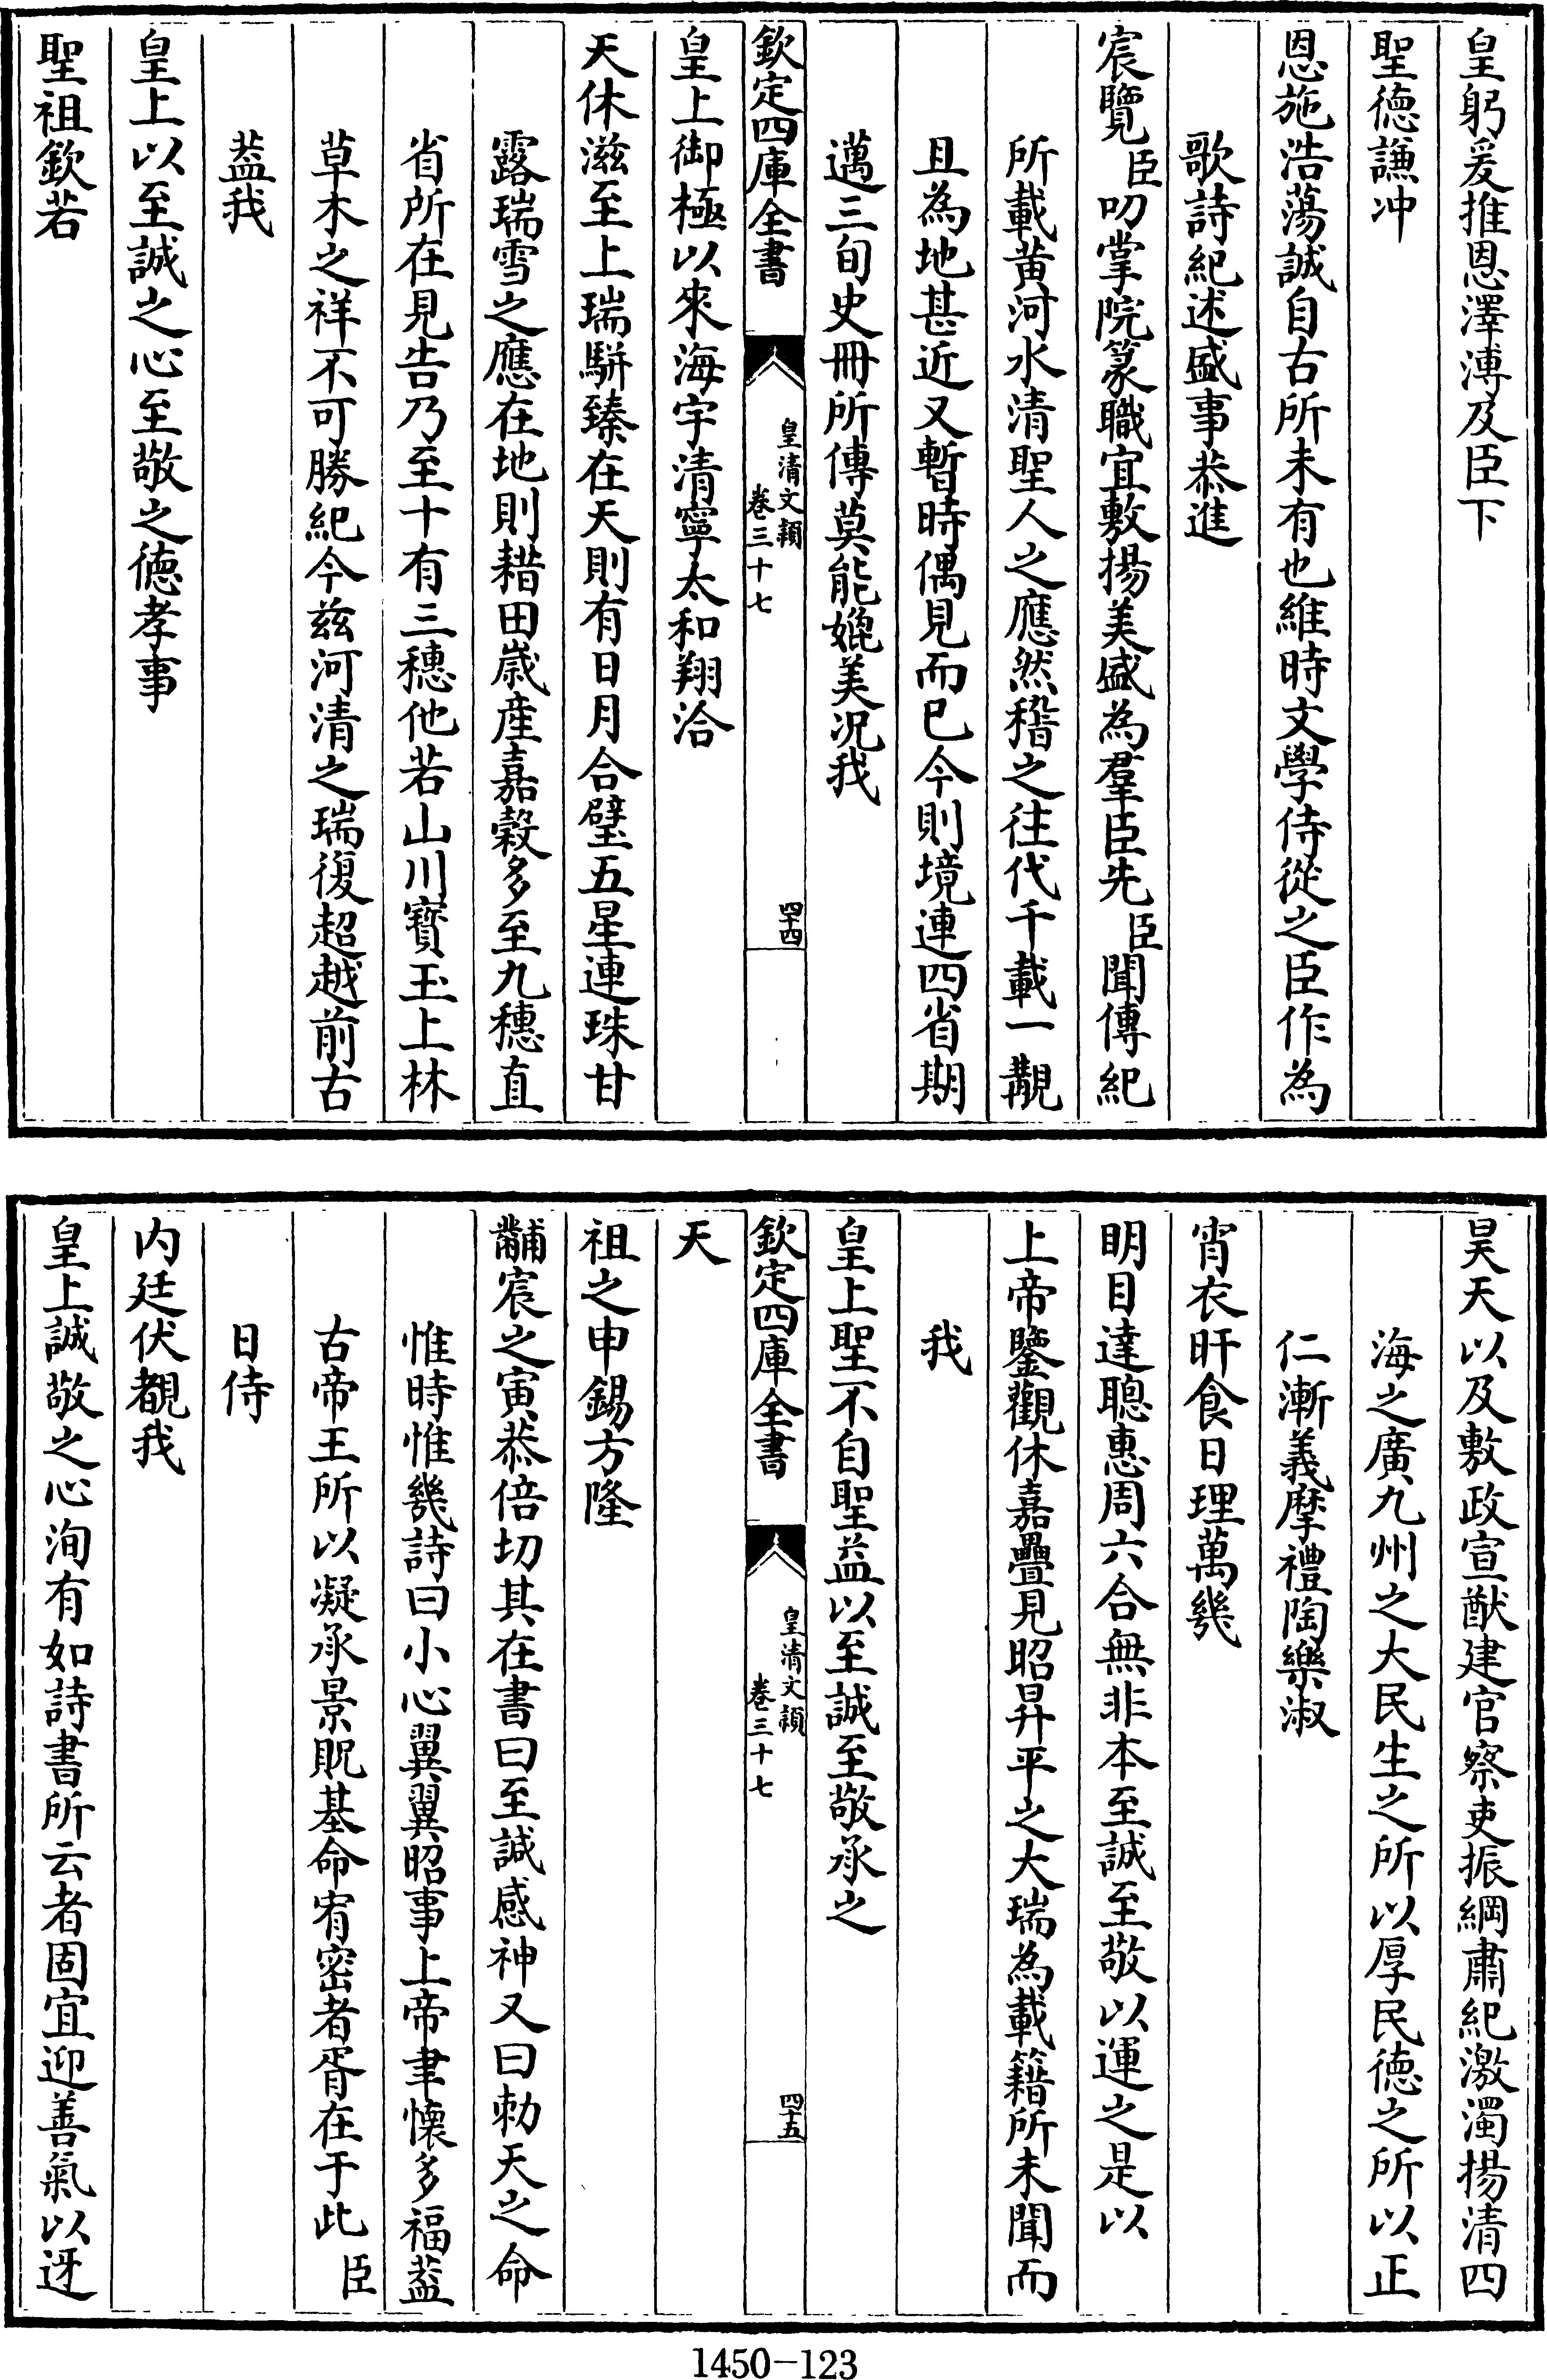 皇躬爰推恩澤溥及臣下
聖德謙冲
恩施浩蕩誠自古所未有也維時文學侍從之臣作為
歌詩紀述盛事恭進
宸覽臣叨掌院篆職宜敷揚美盛為羣臣先臣聞傳紀
所載黄河水清聖人之應然稽之往代千載一覯
且為地甚近又暫時偶見而已今則境連四省期
邁三旬史冊所傳莫能媲美况我
欽定四庫全書
皇清文穎
卷三十七
四十四
皇上御極以來海宇清寧太和翔洽
天休滋至上瑞駢臻在天則有日月合璧五星連珠甘
露瑞雪之應在地則耤田歲産嘉穀多至九穗直
省所在見告乃至十有三穗他若山川寳玉上林
草木之祥不可勝紀今兹河清之瑞復超越前古
葢我
皇上以至誠之心至敬之德孝事
聖祖欽若
昊天以及敷政宣猷建官察吏振綱肅紀激濁揚清四
海之廣九州之大民生之所以厚民德之所以正
仁漸義摩禮陶樂淑
宵衣旰食日理萬幾
明目達聰惠周六合無非本至誠至敬以運之是以
上帝鑒觀休嘉疊見昭昇平之大瑞為載籍所未聞而
我
皇上聖不自聖益以至誠至敬承之
欽定四庫全書
皇清文穎
卷三十七
四十五
天
祖之申錫方隆
黼宸之寅恭倍切其在書曰至諴感神又曰勑天之命
惟時惟幾詩曰小心翼翼昭事上帝聿懷多福葢
古帝王所以凝承景貺基命宥密者胥在于此臣
日侍
内廷伏覩我
皇上誠敬之心洵有如詩書所云者固宜迎善氣以迓
1450-123